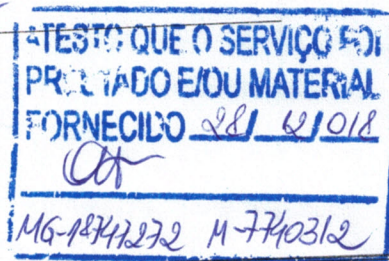 ATESTO QUE O SERVIÇO FOI
PRESTADO E/OU MATERIAL
FORNECIDO 28/ 12/018
MG-18747272 M-7740312